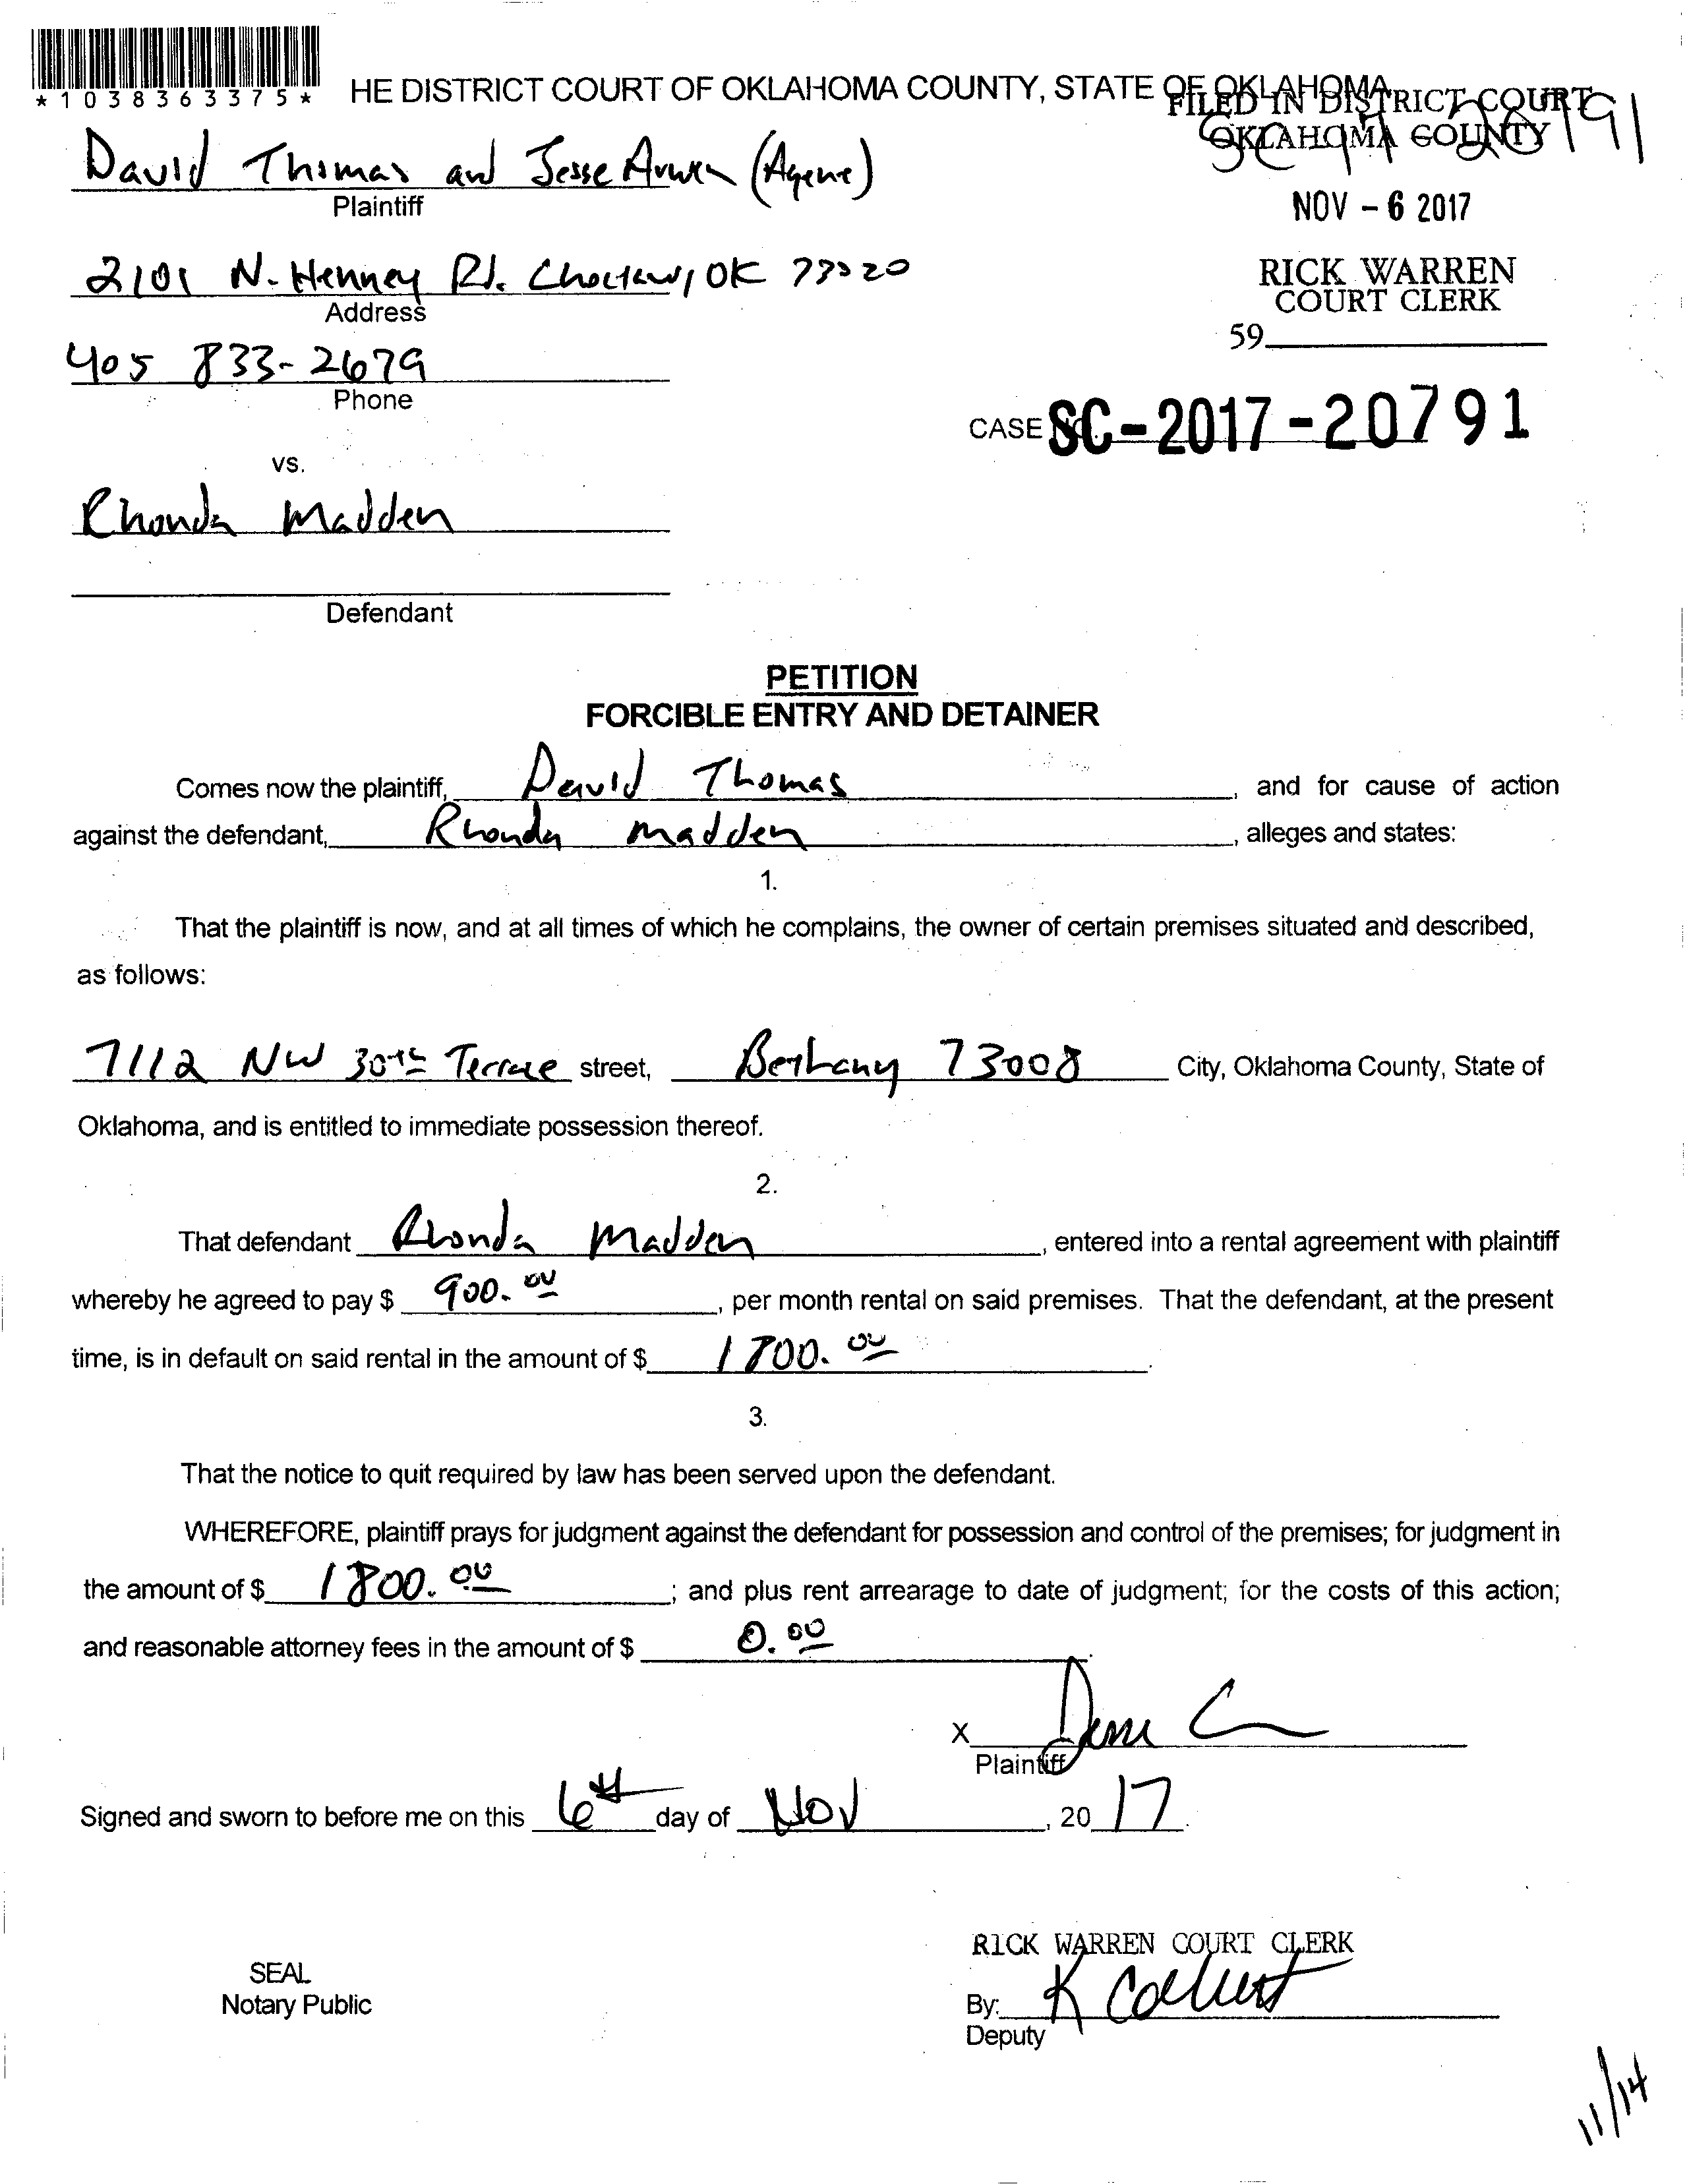 *1038363375*
HE DISTRICT COURT OF OKLAHOMA COUNTY, STATE OF OKLAHOMA
FILED IN DISTRICT COURT
OKLAHOMA COUNTY
SC 17 20791
David Thomas and Jesse (Agent)
Plaintiff
NOV - 6 2017
2101 N. Henney Rd. Choctaw, OK 73020
Address
RICK WARREN
COURT CLERK
59
405 833-2679
Phone
CASE NO. SC-2017-20791
vs.
Rhonda Madden
Defendant
PETITION
FORCIBLE ENTRY AND DETAINER
Comes now the plaintiff, David Thomas, and for cause of action
against the defendant, Rhonda madden, alleges and states:
1.
That the plaintiff is now, and at all times of which he complains, the owner of certain premises situated and described,
as follows:
7112 NW 30th Terrace street, Bethany 73008 City, Oklahoma County, State of
Oklahoma, and is entitled to immediate possession thereof.
2.
That defendant Rhonda Madden, entered into a rental agreement with plaintiff
whereby he agreed to pay $ 900.00, per month rental on said premises. That the defendant, at the present
time, is in default on said rental in the amount of $ 1800.00.
3.
That the notice to quit required by law has been served upon the defendant.
WHEREFORE, plaintiff prays for judgment against the defendant for possession and control of the premises; for judgment in
the amount of $ 1800.00; and plus rent arrearage to date of judgment; for the costs of this action;
and reasonable attorney fees in the amount of $ 0.00.
X
Plaintiff
Signed and sworn to before me on this 6th day of Nov, 20 17.
RICK WARREN COURT CLERK
SEAL
Notary Public
By: K
Deputy
11/14